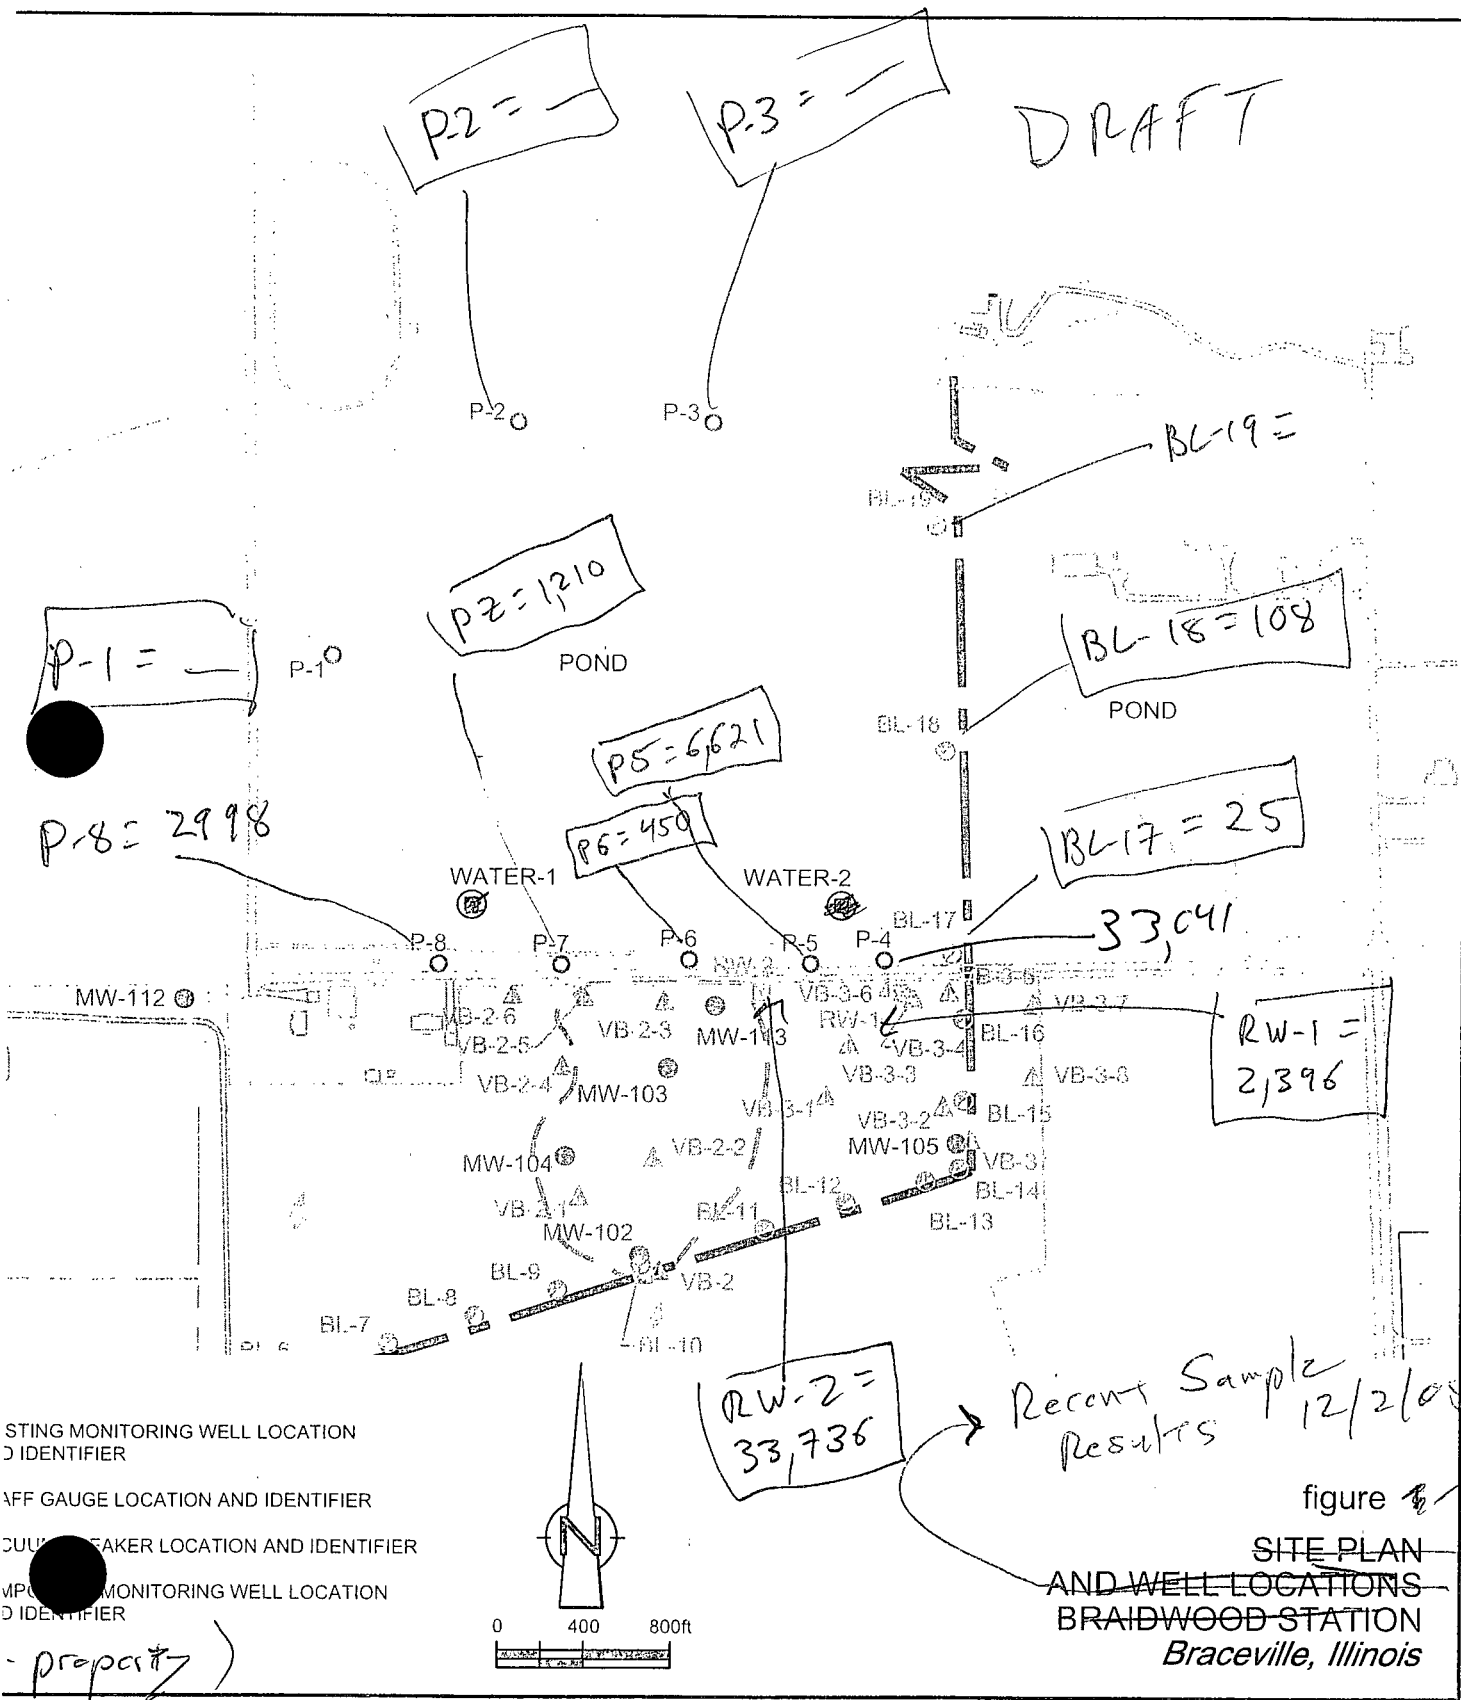 P-2 = —
P-3 = —
DRAFT
P-2
P-3
BL-19 =
BL-19
PZ = 1,210
P-1 = —
P-1
POND
BL-18 = 108
POND
BL-18
P5 = 6,621
P6 = 450
BL-17 = 25
P-8 = 2998
WATER-1
WATER-2
BL-17
33,041
P-8
P-7
P-6
P-5
P-4
RW-2
MW-112
VB-2-6
VB-2-3
MW-113
VB-3-6
B-3-5
VB-3-7
RW-1
BL-16
RW-1 =
2,396
VB-2-5
VB-3-4
VB-2-4
MW-103
VB-3-3
VB-3-8
VB-3-1
VB-3-2
BL-15
MW-104
VB-2-2
MW-105
VB-3
BL-14
VB-2-1
BL-12
BL-11
BL-13
MW-102
BL-9
VB-2
BL-8
BL-7
BL-10
RW-2 =
33,736
Recent Sample
Results
12/2/05
STING MONITORING WELL LOCATION
D IDENTIFIER
AFF GAUGE LOCATION AND IDENTIFIER
CUU EAKER LOCATION AND IDENTIFIER
MPO MONITORING WELL LOCATION
D IDENTIFIER
- property)
N
0 400 800ft
figure
SITE PLAN
AND WELL LOCATIONS
BRAIDWOOD STATION
Braceville, Illinois